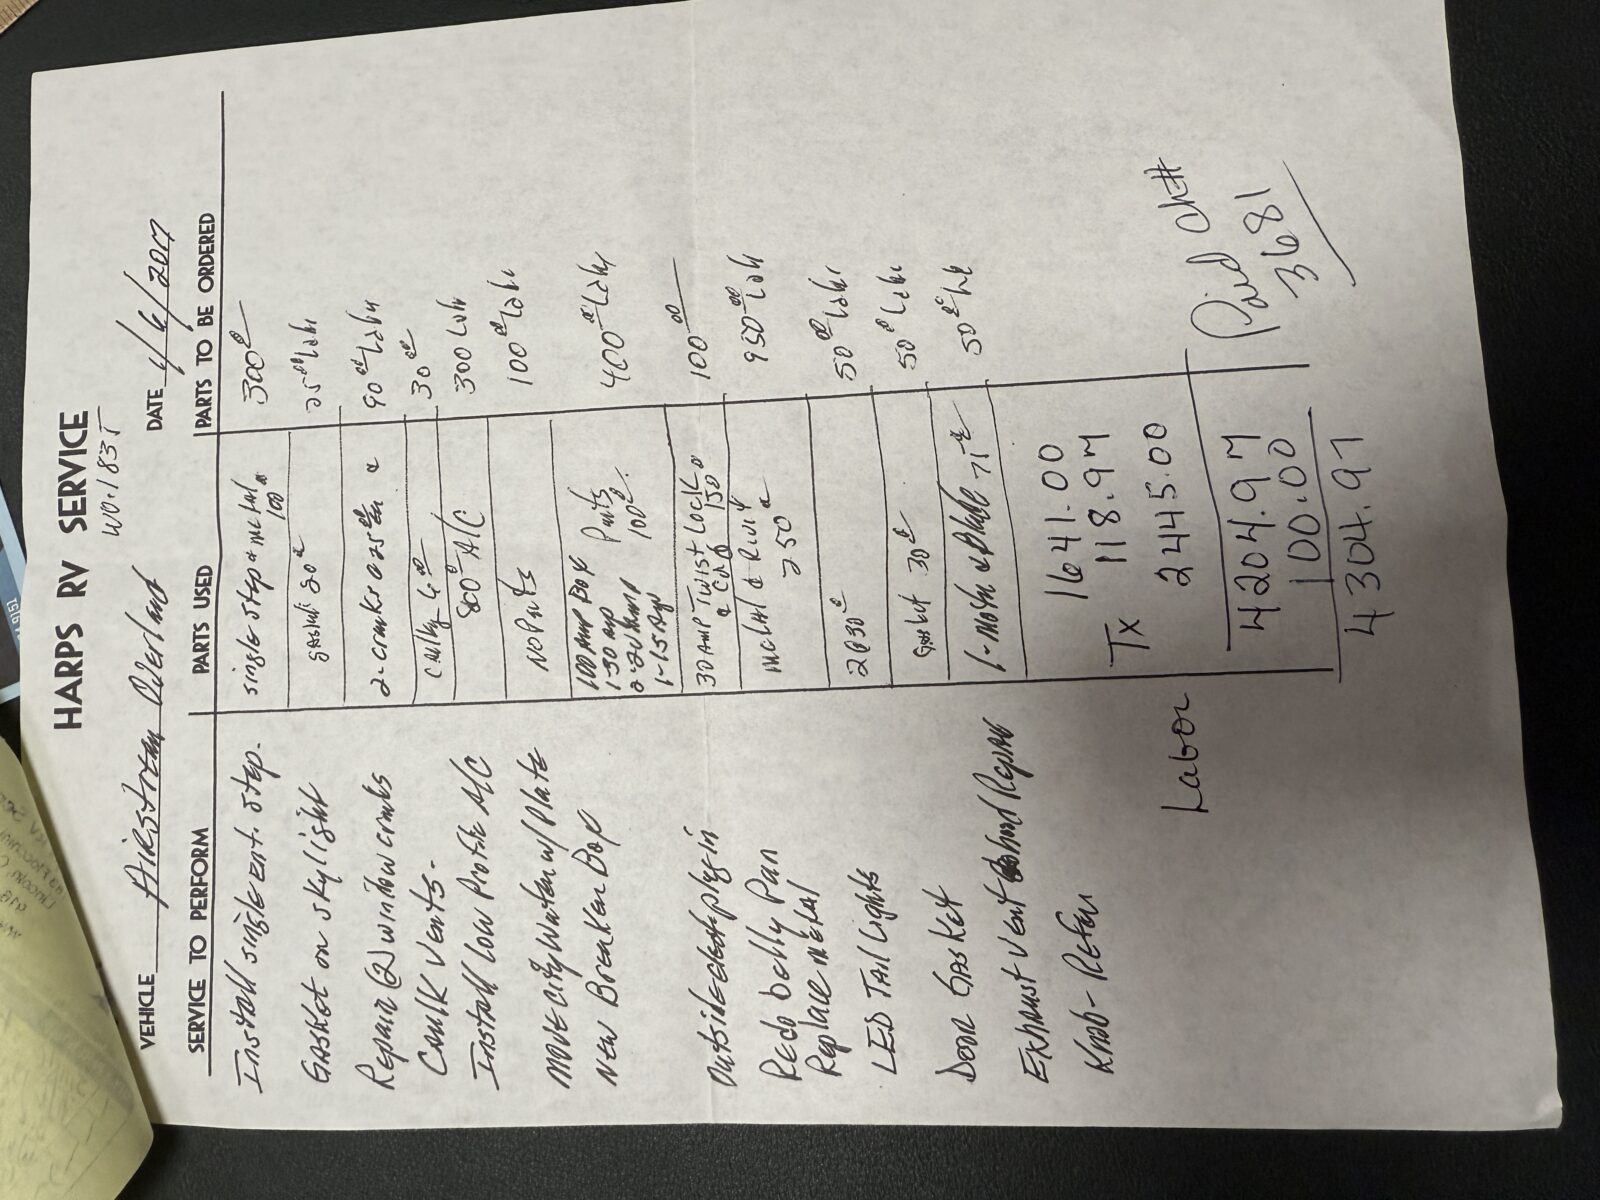 HARPS RV SERVICE
WO.1835
VEHICLE Airstream Overland DATE 4/6/2017
SERVICE TO PERFORM PARTS USED PARTS TO BE ORDERED
Install single ent. step. single step & metal 100 300
Gasket on skylight gasket 20 25 00 Labr
Repair (2) window cranks 2-cranks @ 25 ea 90 Labr
Caulk Vents- caulk 6 00 30 00
Install Low Profile A/C 800 A/C 300 Labr
Move city water w/ Plate No Parts 100 Labr
New Breaker Box 100 Amp Box Parts 400 Labr
1-30 amp 100
2-20 Amp
1-15 Amp
Outside elect plug in 30 Amp Twist Lock 100 00
& Cord 150
Redo belly Pan metal & Rivit 950 00 Labr
Replace metal 250
LED Tail Lights 2@30 50 00 Labr
Door Gasket Gasket 30 50 Labr
Exhaust Vent hood Repair 1-motor & Blade 71 50
Knob-Refer
1641.00
Tx 118.97
Labor 2445.00
4204.97
100.00
4304.97
Paid Ch#
3681